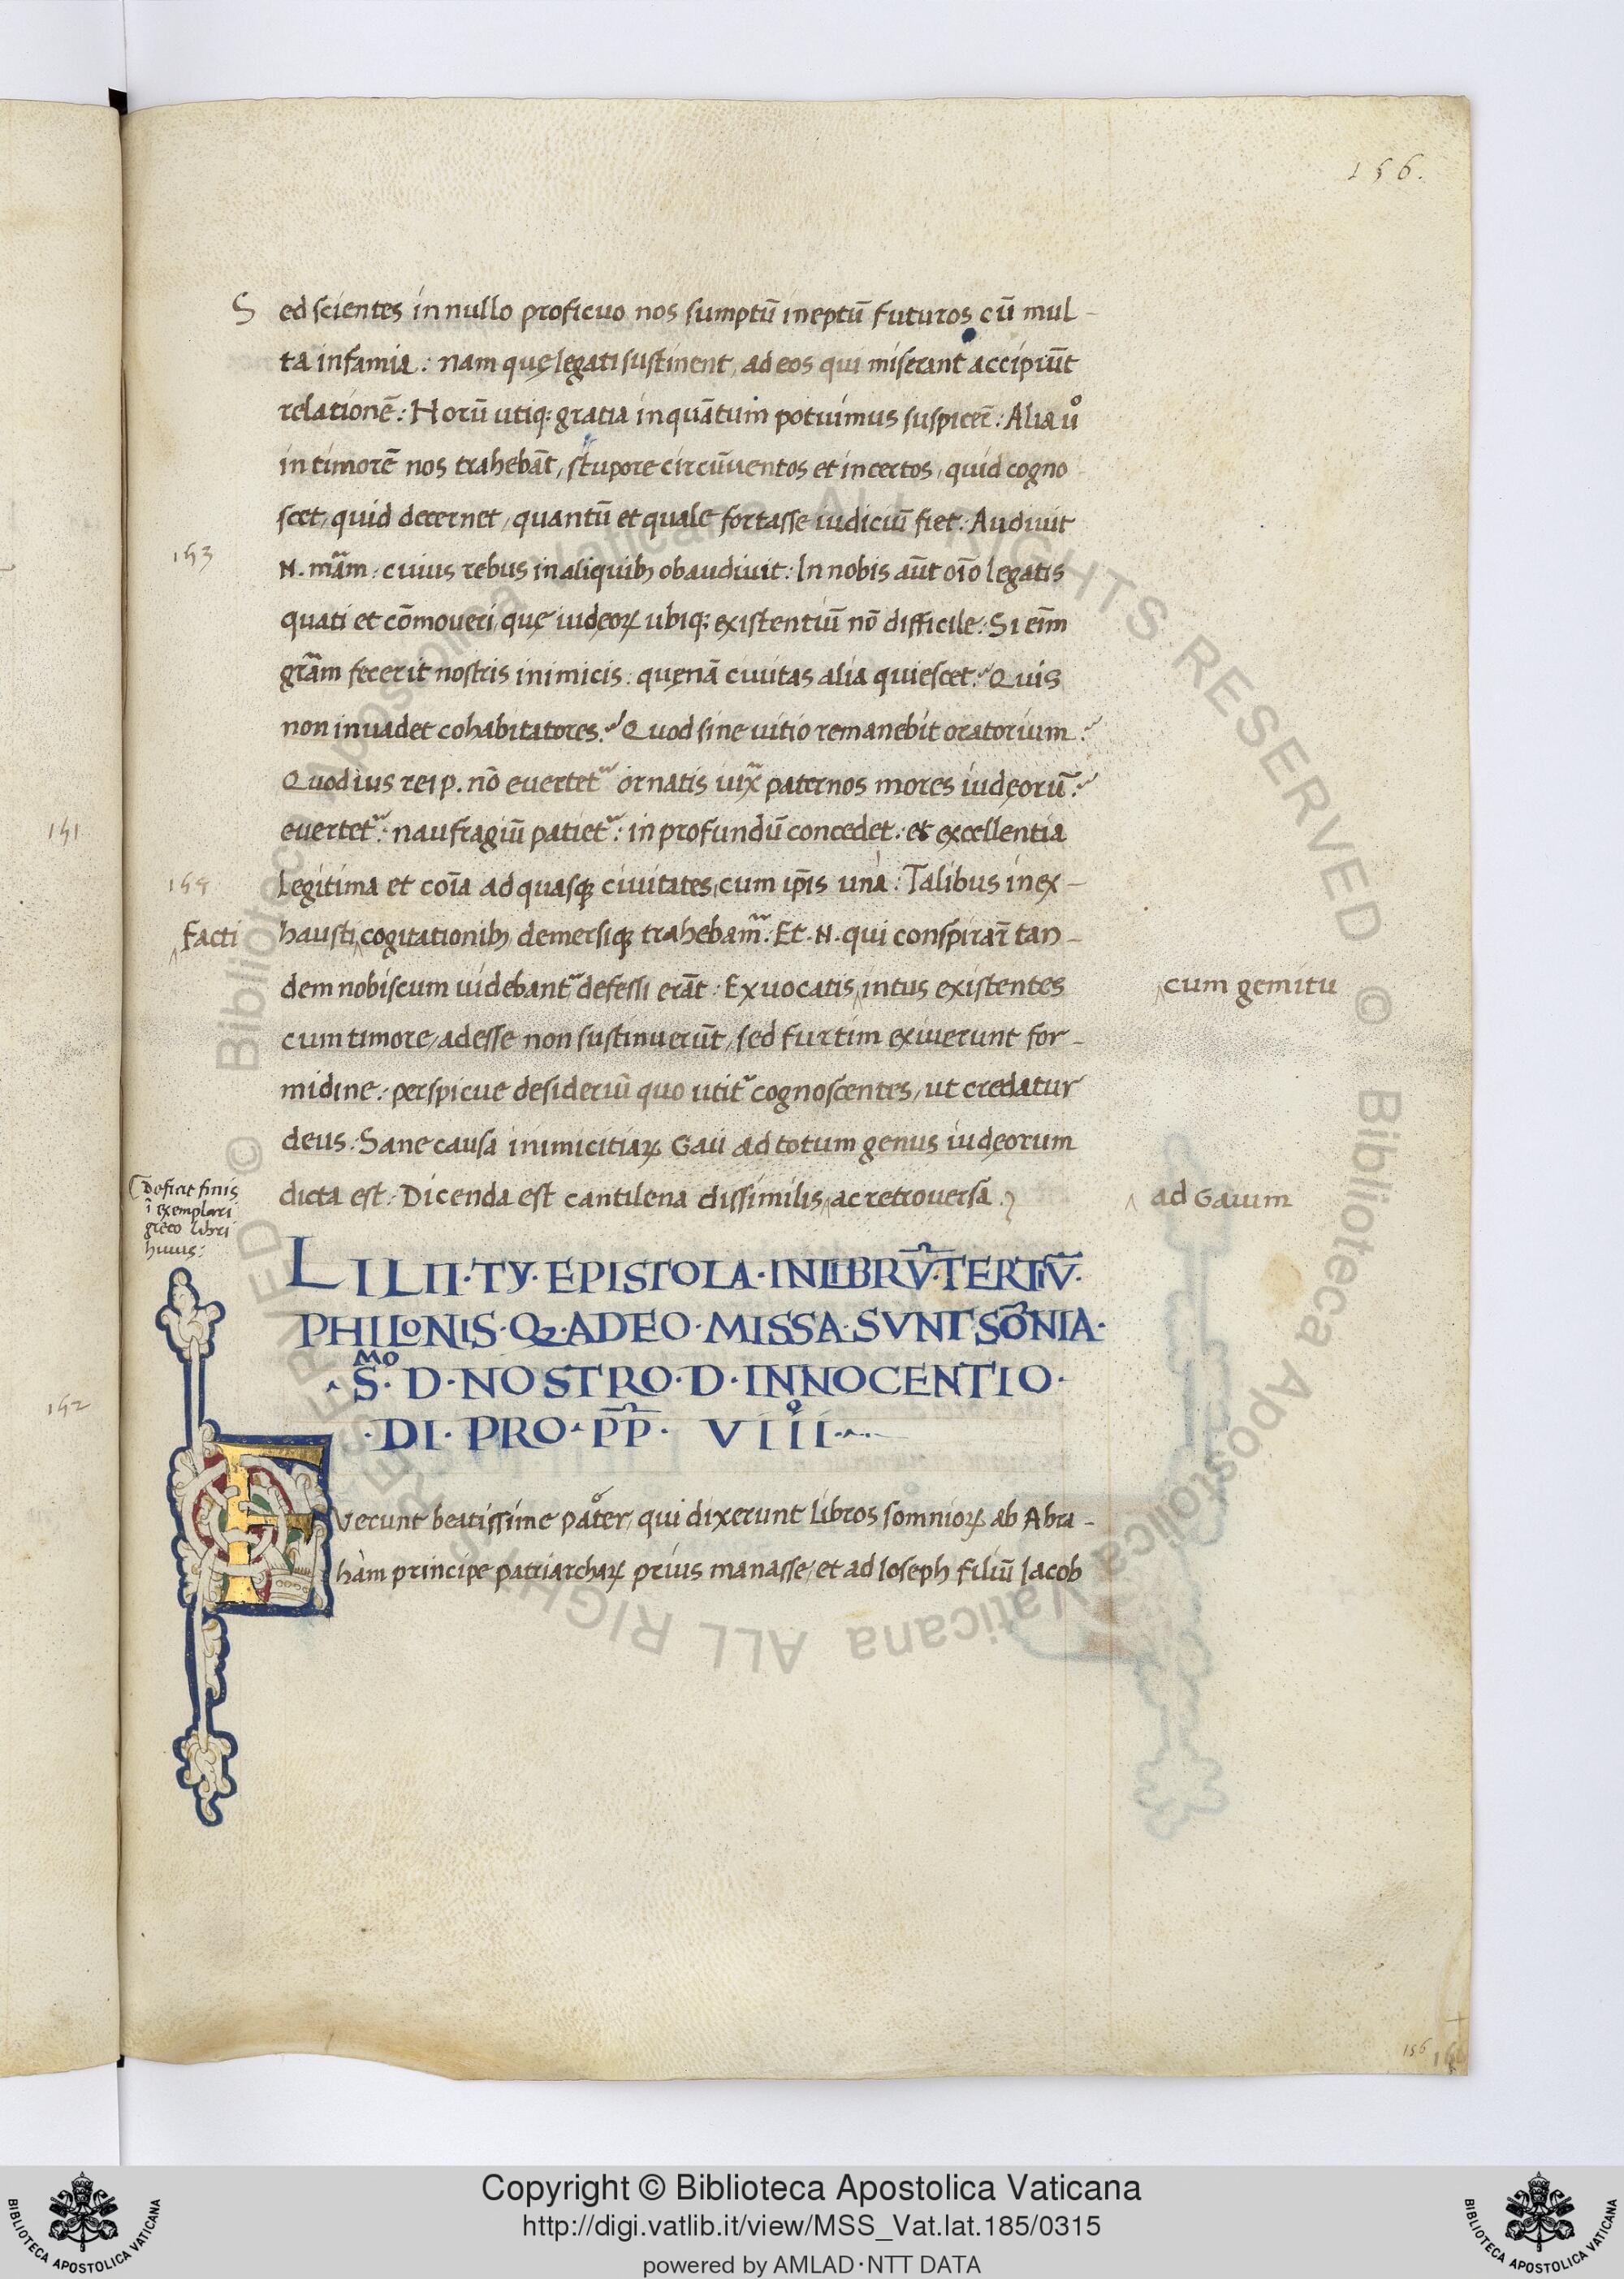 156.
Sed scientes in nullo proficuo nos sumptū ineptū futuros cū mul-
ta infamia: nam quę legati sustinent, ad eos qui miserant accipiūt
relationē: Horū utiq; gratia inquātum potuimus suspicer̄: Alia u°
in timorē nos trahebāt, stupore circūuentos et incertos, quid cogno
scet, quid decernet, quantū et quale fortasse iudiciū fiet: Audiuit
153
N. mām, cuius rebus in aliquibꝫ obaudiuit: In nobis aūt oīo legatis
quati et cōmoueri, quę iudęoꝝ ubiq; existentiū nō difficile: Si eīm
grām fecerit nostris inimicis: quęnā ciuitas alia quiescet? Quis
non inuadet cohabitatores? Quod sine uitio remanebit oratorium?
Quod ius reip. nō euertet̃ ornatis paternos mores iudęorū?
151
euertet̃: naufragiū patiet̃: in profundū concedet: et excellentia
154
legitima et cōīa ad quasqꝫ ciuitates, cum ip̄is unà: Talibus inex-
facti
hausti cogitationibꝫ demersiqꝫ trahebam̃: Et. N. qui conspirar̄ tan-
dem nobiscum uidebant̃ defessi erāt: Ex uocatis intus existentes
cum gemitu
cum timore, adesse non sustinuerūt, sed furtim exiuerunt for-
midine: perspicue desideriū quo utit̃ cognoscentes, ut credatur
deus: Sane causa inimicitiaꝝ Gaii ad totum genus iudęorum
dicta est: Dicenda est cantilena dissimilis ac retrouersa
ad Gaium
Deficit finis
ī exemplari
greco libri
huius:
LILII·TY·EPISTOLA·IN LIBRV̄·TERTIV̄·
PHILONIS·Q·A DEO·MISSA·SVNT SŌNIA·
S̄MO·D·NOSTRO·D·INNOCENTIO·
·DI·PRO·P̄P̄· VIIIº
152
FVerunt beatissime pater, qui dixerunt libros somnioꝝ ab Abra-
hàm principe patriarchaꝝ prius manasse, et ad Ioseph filiū Iacob
156
BIBLIOTECA APOSTOLICA VATICANA
Copyright © Biblioteca Apostolica Vaticana
http://digi.vatlib.it/view/MSS_Vat.lat.185/0315
powered by AMLAD·NTT DATA
BIBLIOTECA APOSTOLICA VATICANA